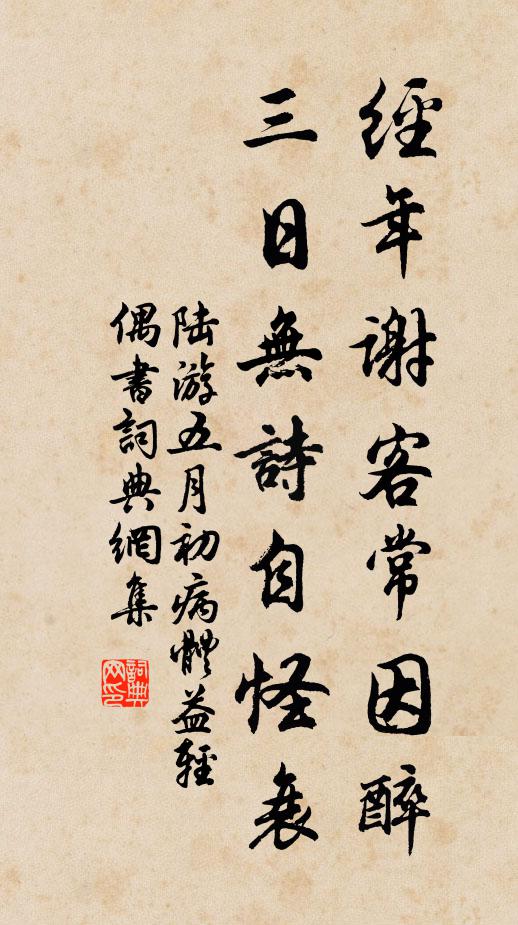 經年謝客常因醉
三日無詩自怪衰
陸游五月初病體益輕
偶書詞典網集
詞典
网印